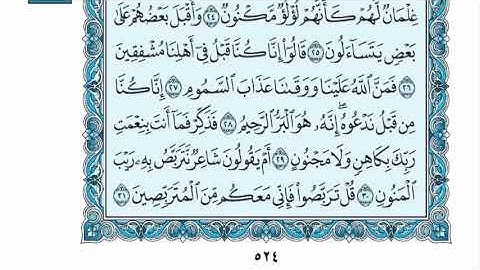 غِلْمَانٌ لَّهُمْ كَأَنَّهُمْ لُؤْلُؤٌ مَّكْنُونٌ ٢٤ وَأَقْبَلَ بَعْضُهُمْ عَلَىٰ
بَعْضٍ يَتَسَآءَلُونَ ٢٥ قَالُوٓا۟ إِنَّا كُنَّا قَبْلُ فِىٓ أَهْلِنَا مُشْفِقِينَ
٢٦ فَمَنَّ ٱللَّهُ عَلَيْنَا وَوَقَىٰنَا عَذَابَ ٱلسَّمُومِ ٢٧ إِنَّا كُنَّا
مِن قَبْلُ نَدْعُوهُ ۖ إِنَّهُۥ هُوَ ٱلْبَرُّ ٱلرَّحِيمُ ٢٨ فَذَكِّرْ فَمَآ أَنتَ بِنِعْمَتِ
رَبِّكَ بِكَاهِنٍ وَلَا مَجْنُونٍ ٢٩ أَمْ يَقُولُونَ شَاعِرٌ نَّتَرَبَّصُ بِهِۦ رَيْبَ
ٱلْمَنُونِ ٣٠ قُلْ تَرَبَّصُوا۟ فَإِنِّى مَعَكُم مِّنَ ٱلْمُتَرَبِّصِينَ ٣١
٥٢٤